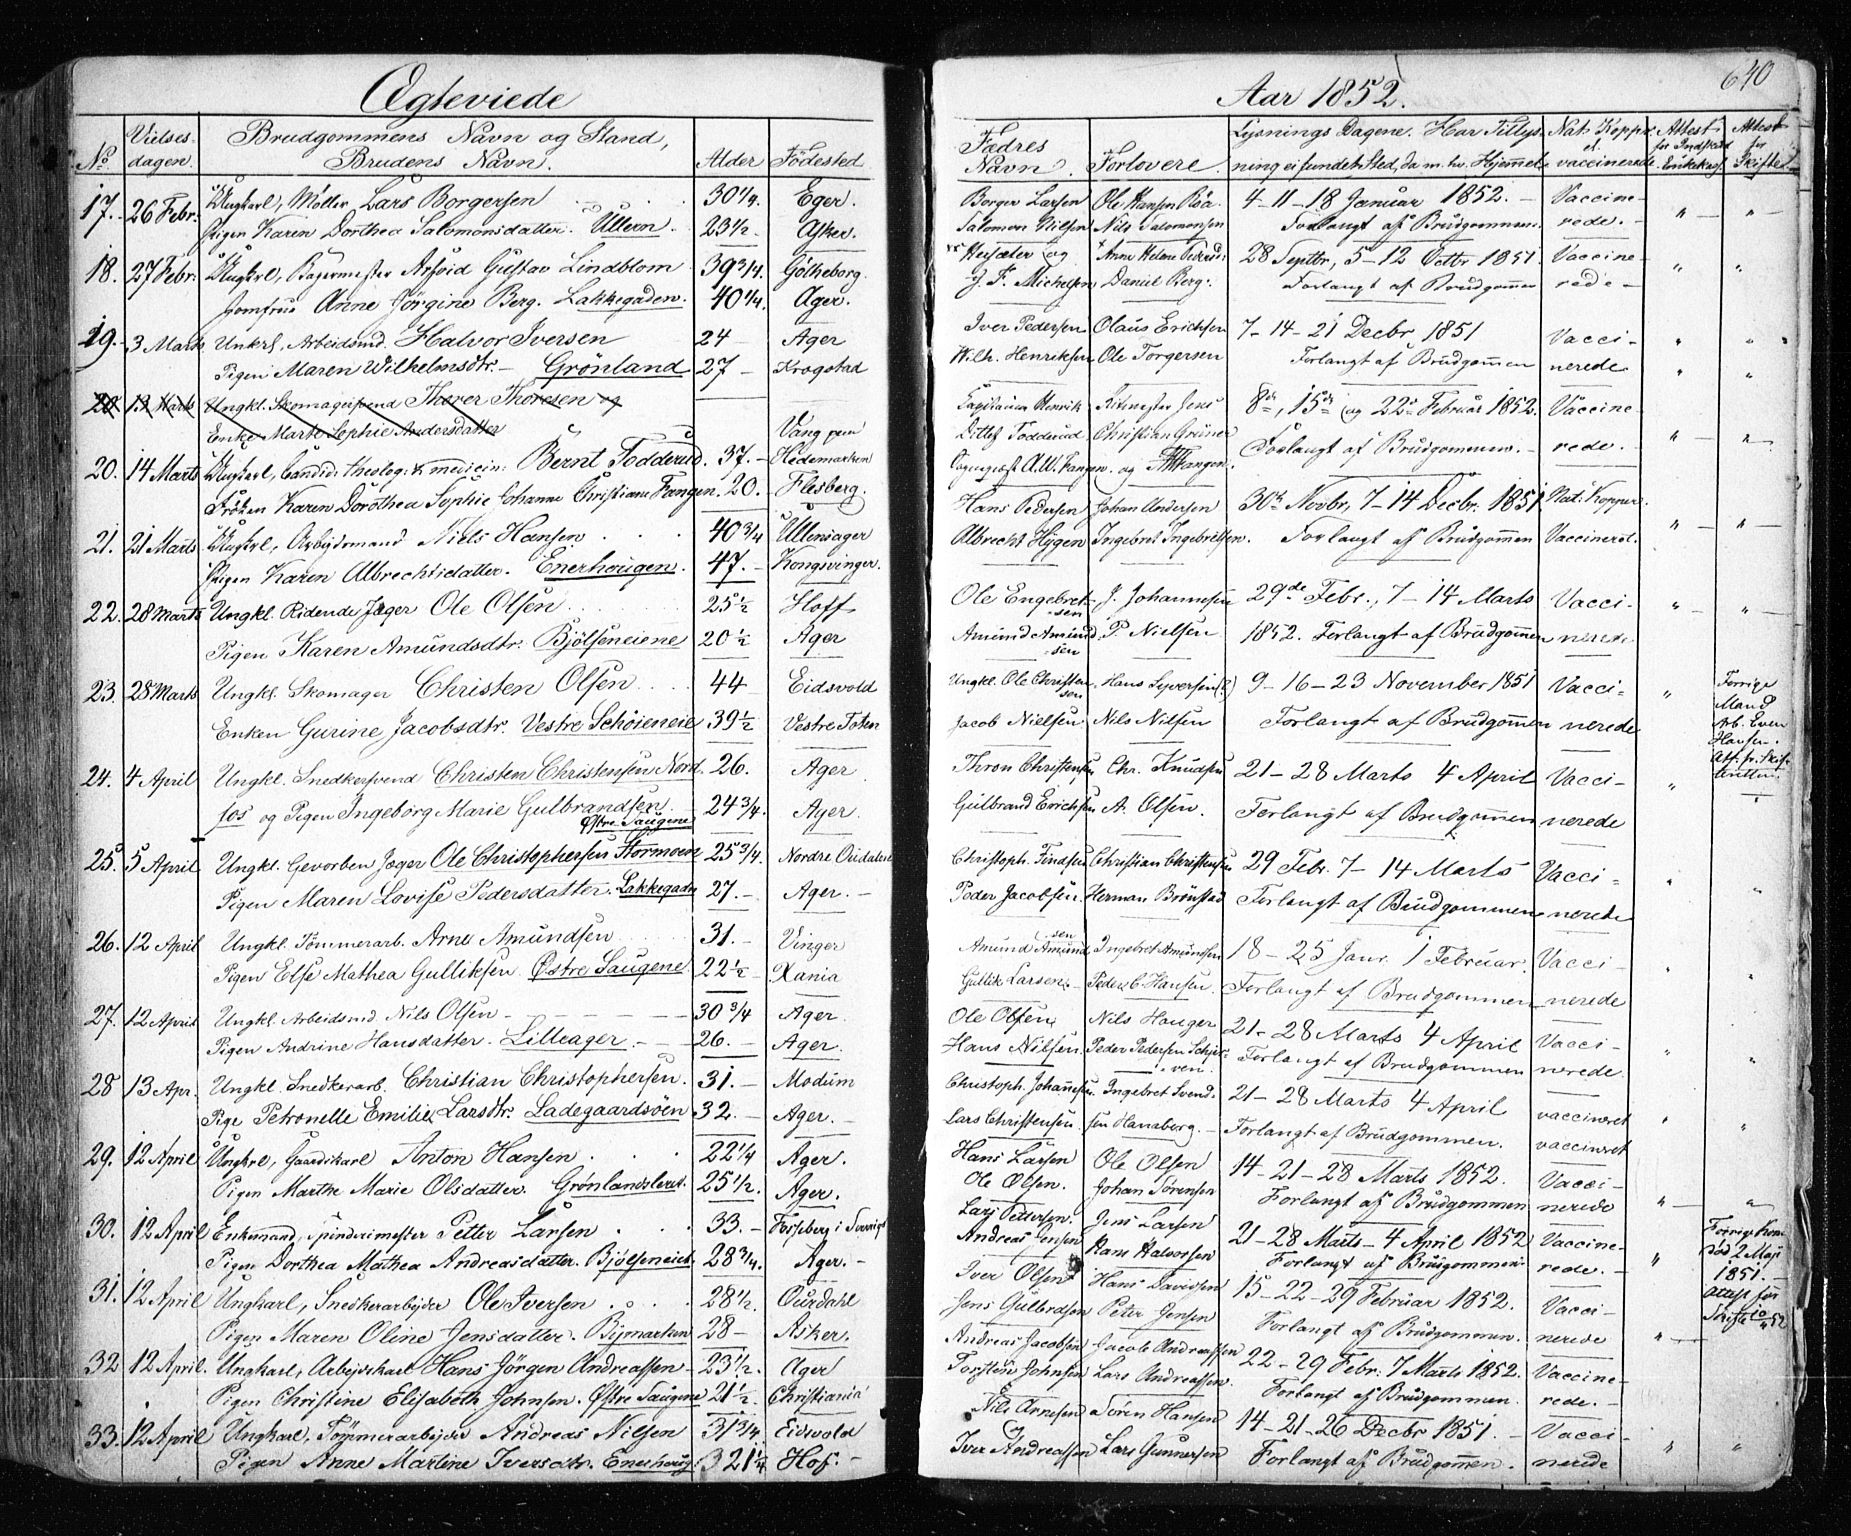 Ægteviede
Aar 1852.
640
No. Vielses-dagen. Brudgommens Navn og Stand, Brudens Navn. Alder Fødested
Fædres Navn. Forlovere. Lysnings Dagene. Har Tillysning ei fundet Sted, da m. hv. Hjemmel Nat. Kopper el. vaccinerede Attest for Attest for Skiftet
17. 26 Febr. Ungkarl, Møller Lars Borgersen 30 1/4 Eger. Borger Larsen Ole Hansen Röa. 4-11-18 Januar 1852. Vaccine-
Pigen Karen Dorthea Salomonsdatter. Ullern. 23 1/2 Asker. Salomon Nilsen Nils Salomonsen Forlangt af Brudgommen. rede. " "
18. 27 Febr. Ungkrl, Bagermester Gustav Lindblom 39 3/4. Götheborg. og Anne Helene 28 Septbr, 5-12 Octbr 1851 Vaccine-
Jomfru Anne Jörgine Berg. Lakkegaden. 40 1/4. Ager. J. F. Michelsen Daniel Berg. Forlangt af Brudgommen rede " "
19. 3 Marts Unkrl, Arbeidsmd. Halvor Iversen 24 Ager Iver Pedersen Olaus Erichsen 7-14-21 Decbr 1851 Vacci- " "
Pigen Maren Wilhelmsdtr. Grönland 27 Krogstad Wilh. Henriksen Ole Torgersen Forlangt af Brudgommen nerede " "
20. 13 Marts Ungkl. Skomagersvend Thorer Thoresen og
Enke Marte Sophie Andersdatter
20. 14 Marts Ungkarl, Candid: theolog: & medicin: Bernt Todderud. 37. Vang paa Hedemarken Capitain Henrik Ditlef Todderud Ritmester Jens Christian Grüner 8de, 15de og 22de Februar 1852. Vaccine-
Fröken Karen Dorothea Sophie Johanne Christiane Fangen. 20. Flesberg. Sognepræst A. W. Fangen. og Fangen. Forlangt af Brudgommen. rede. " "
21. 21 Marts Ungkrl, Arbejdsmand Niels Hansen 40 3/4 Ullensager Hans Pedersen Johan Andersen 30te Novbr, 7-14 Decbr. 1851 Nat: Kopper.
Pigen Karen Albrechtsdatter. Enerhougen. 47. Kongsvinger. Albrecht Hygen Ingebret Ingebretsen. Forlangt af Brudgommen Vaccineret. " "
22. 28 Marts Ungkl. Ridende Jæger Ole Olsen 25 1/2 Hoff Ole Engebretsen J. Johannesen 29de Febr., 7-14 Marts Vacci- " "
Pigen Karen Amundsdtr. Bjölseneiene 20 1/2 Ager Amund Amundsen P. Nielsen 1852. Forlangt af Brudgommen nerede
23. 28 Marts Ungkl. Skomager Christen Olsen 44 Eidsvold Ungkl. Ole Christensen Hans Syversen (?) 9-16-23 November 1851 Vacci- " Forrige Mand
Enken Gurine Jacobsdtr. Vestre Schöieneie 39 1/2 Vestre Toten Jacob Nielsen. Nils Nilsen Forlangt af Brudgommen nerede Arb. Even Hansen. Att. fr. Skifteretten.
24. 4 April Ungkl. Snedkersvend Christen Christensen Nord- 26. Ager Thron Christensen Chr. Knudsen 21-28 Marts 4 April Vacci- "
fos og Pigen Ingeborg Marie Gulbrandsen. Østre Saugene 24 3/4. Ager. Gulbrand Erichsen A. Olsen. Forlangt af Brudgommen nerede "
25. 5 April Ungkl. Gevorben Jæger Ole Christophersen Stormoen 25 3/4. Nordre Ourdalen Christoph. Findsen Christian Christensen 29 Febr. 7-14 Marts Vacci- "
Pigen Maren Lovise Pedersdatter. Lakkegadn 27. Ager. Peder Jacobsen. Herman Brönstad Forlangt af Brudgommen nerede "
26. 12 April Ungkl. Tömmerarb. Arne Amundsen 31. Vinger Amund Amundsen Ingebret Amundsen 18-25 Janr. 1 Februar. Vacci-
Pigen Else Mathea Gulliksen. Østre Saugene 22 1/2 Xania Gullik Larsen. Peder C. Hansen. Forlangt af Brudgommen nerede " "
27. 12 April Ungkl. Arbeidsmd Nils Olsen 30 3/4 Ager. Ole Olsen Nils Hauger 21-28 Marts 4 April Vacci-
Pigen Andrine Hansdatter. Lilleager. 26. Ager. Hans Nilsen. Peder Pedersen Forlangt af Brudgommen nerede. " "
28 13 Apr. Ungkl. Snedkerarb. Christian Christophersen. 31. Modum Christoph. Johannesen Ingebret Svend- 21-28 Marts 4 April vaccineret
Pige Petronelle Emilie Larsdtr. Ladegaardsöen 32. Ager. Lars Christensen. sen Hanaborg. Forlangt af Brudgommen. vaccineret " "
29. 12 April Ungkrl, Gaardskarl Anton Hansen 22 1/4 Ager. Hans Larsen Ole Olsen 14-21-28 Marts 1852. Vacci-
Pigen Marthe Marie Olsdatter. Grönlandsleret. 25 1/2. Ager. Ole Olsen. Johan Sörensen Forlangt af Brudgommen nerede " "
30. 12 April Enkemand, Spinderimester Petter Larsen 33. i Sverige Lars Pettersen. Jens Larsen 21-28 Marts-4 April 1852 Vaccine- Forrige Kone
Pigen Dorthea Mathea Andreasdatter. Bjölseneiet. 28 3/4. Ager. Andreas Jensen Hans Halvorsen Forlangt af Brudgommen. rede. " död 2 Maj 1851.
31. 12 April Ungkarl, Snedkerarbejder Ole Iversen 28 1/2. Ourdahl Iver Olsen Hans Davidsen 15-22-29 Februar 1852. Vacci- Attest for
Pigen Maren Oline Jensdatter. Bymarken 28 Asker. Jens Gulbrdsen Peter Jensen Forlangt af Brudgommen. nerede " Skifte
32 12 April. Ungkarl, Arbejdskarl Hans Jörgen Andreassen 23 1/2. Ager Andreas Jacobsen Jacob Andreassen 22-29 Febr: 7 Marts 1852. Vaccine-
Pigen Christine Elisabeth Johnsen. Østre Saugene 21 1/2 Christiania Torsten Johnsen Lars Andreassen. Forlangt af Brudgommen. rede.
33. 12 April Ungkarl, Tømmerarbejder Andreas Nilsen 31 3/4 Eidsvold Nils Arnesen Sören Hansen 14-21-26 Decbr 1851. Vacci-
Pigen Anne Martine Iversdtr. Enerhoug: 32 1/4 Hof. Iver Andreassen Lars Gunnersen Forlangt af Brudgommen. nerede " "